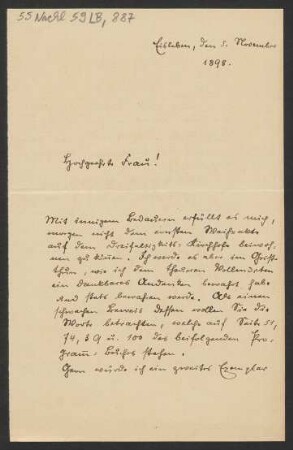 55 Nachl 59/B, 887
Eisleben, den 5. November
1898.
Hochgeehrte Frau!
Mit innigem Bedauern erfüllt es mich,
morgen nicht dem ernsten Weiheakte
auf dem Dreifaltigkeits-Kirchhofe beiwoh-
nen zu können. Ich werde es aber im Geiste
thun, wie ich dem theueren Vollendeten
ein dankbares Andenken bewahrt habe
und stets bewahren werde. Als einen
schwachen Beweis dessen wollen Sie die
Worte betrachten, welche auf Seite 51,
74, 89 u. 100 des beifolgenden Pro-
gramm-Buches stehen.
Gern würde ich ein zweites Exemplar